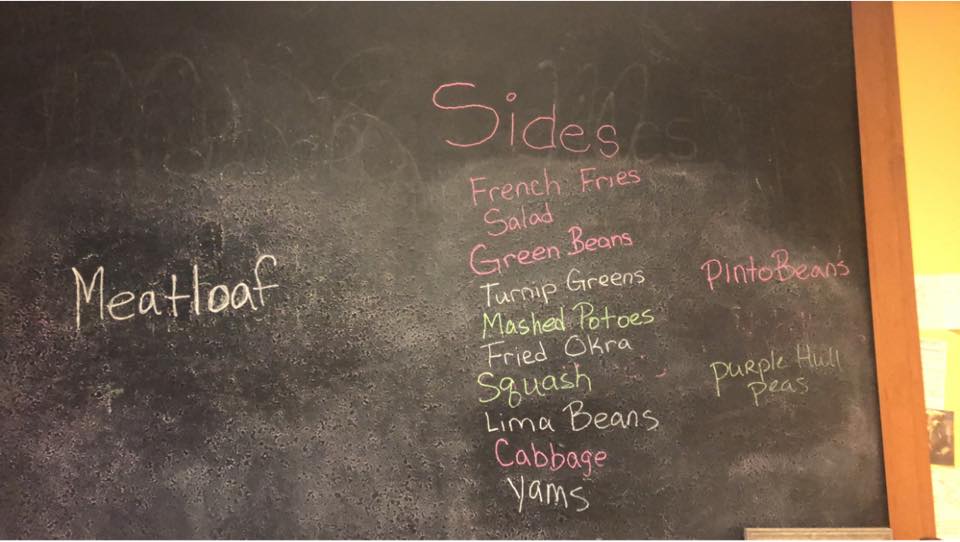 Sides
French Fries
Salad
Green Beans
Turnip Greens
Mashed Potoes
Fried Okra
Squash
Lima Beans
Cabbage
Yams
Meatloaf
Pinto Beans
Purple Hull
Peas